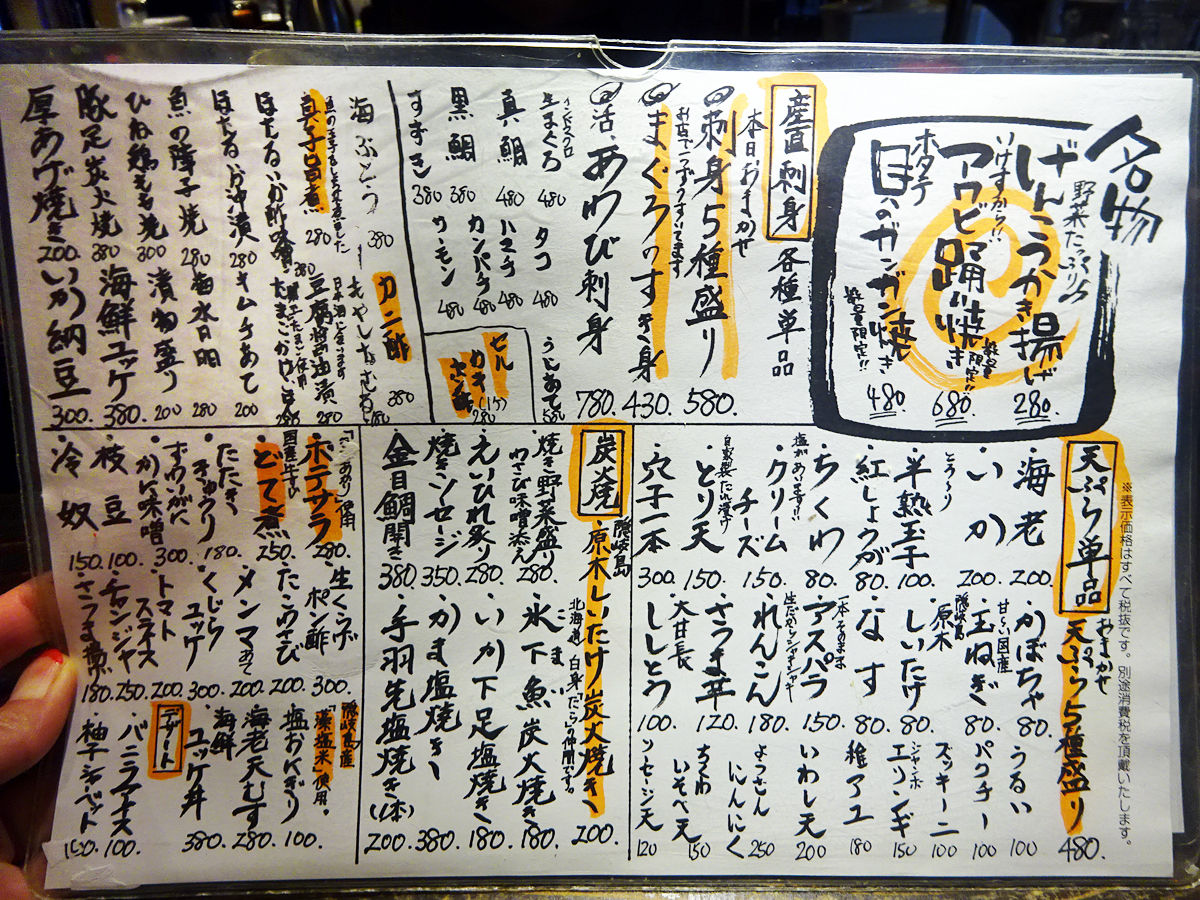 名物
野菜たっぷり
げんこつかき揚げ 280.
いけすから!!
アワビ踊り焼き 数量限定!! 680.
ホタテ
貝のガンガン焼き 数量限定!! 480.
産直刺身 各種単品
本日おまかせ
刺身5種盛り 580.
まぐろのすき身 430.
活あわび刺身 780.
インドマグロ
生まぐろ 480
真鯛 480
黒鯛 380
すずき 380
タコ 480
ハマチ 480
カンパチ 480
サーモン 480
セルかき
ポン酢 280
海ぶどう 380
真子旨煮 280
ほたるいか酢味噌 380
ほたるいか沖漬 280
魚の障子焼 280
ひね鶏もも焼 300
豚足炭火焼 380
厚あげ焼き 200.
カニ酢 380
もやしなむる 180
豆腐醤油漬 280
たまごかけごはん
キムチあて 200
漬物盛り 200
海鮮ユッケ 380.
いか納豆 300.
※表示価格はすべて税抜です。別途消費税を頂戴いたします。
天ぷら単品
おまかせ
天ぷら5種盛り 480.
・海老 200.
・いか 200.
とろ〜り
・半熟玉子 100.
・紅しょうが 80.
・ちくわ 80.
塩があいます!!
・クリームチーズ 150.
自家製たれ漬け
・とり天 150.
・穴子一本 300.
甘〜い国産
・かぼちゃ 80.
・玉ねぎ 80.
隠岐島
原木
・しいたけ 80.
・なす 80.
一本そのまま
・アスパラ 150.
・れんこん 180.
・さつま芋 120.
大甘長
・ししとう 100.
うるい 100
パクチー 100
ズッキーニ 100
ジャンボ
エリンギ 150
稚アユ 180
いわし天 200
にんにく 250
ちくわ
いそべ天 150
ソーセージ天 120
炭火焼
隠岐島
・原木しいたけ炭火焼き 200.
・焼き野菜盛り 280.
わさび味噌添え
・えいひれ炙り 280.
・焼きソーセージ 350.
・金目鯛開き 380.
北海道 白身「たら」の仲間です。
・氷下魚炭火焼き 180.
・いか下足塩焼き 180.
・かま塩焼き 380.
・手羽先塩焼き(1本) 200.
・ポテサラ 280.
国産牛すじ
・どて煮 250.
・たたききゅうり 180.
・ずわいがにかに味噌 300.
・枝豆 100.
・冷奴 150.
・生くらげポン酢 300.
・たこわさび 200.
・メンマあて 200.
・くじらユッケ 300.
・トマトスライス 200.
・チャンジャ 250.
・さつま揚 180.
隠岐島産
「藻塩米」使用・
塩おにぎり 100.
海老天むす 280.
海鮮ユッケ丼 380.
デザート
・バニラアイス 100.
・柚子シャーベット